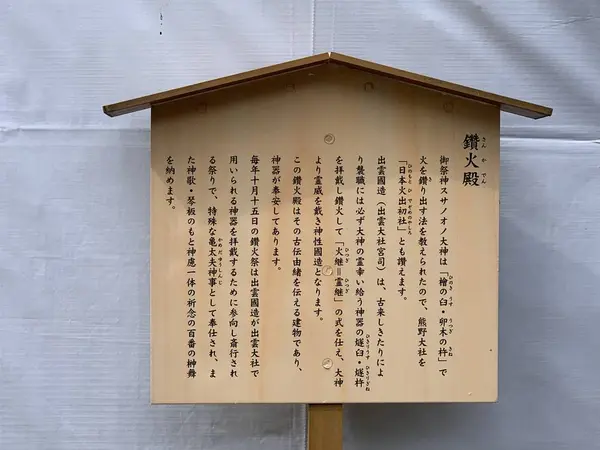 鑽火殿
さんかでん
御祭神スサノオノ大神は「檜の臼・卯木の杵」で
ひのき うす うつぎ きね
火を鑽り出す法を教えられたので、熊野大社を
「日本火出初社」とも讃えます。
ひのもとひでぞめのやしろ
出雲國造(出雲大社宮司)は、古来しきたりによ
り襲職には必ず大神の霊幸い給う神器の燧臼・燧杵
ひきりうす ひきりぎね
を拝戴し鑽火して「火継=霊継」の式を仕え、大神
ひつぎ ひつぎ
より霊威を戴き神性國造となります。
この鑽火殿はその古伝由緒を伝える建物であり、
神器が奉安してあります。
毎年十月十五日の鑽火祭は出雲國造が出雲大社で
用いられる神器を拝戴するために参向し斎行され
る祭りで、特殊な亀太夫神事として奉仕され、ま
かめだゆうしんじ
た神歌・琴板のもと神慮一体の祈念の百番の榊舞
を納めます。